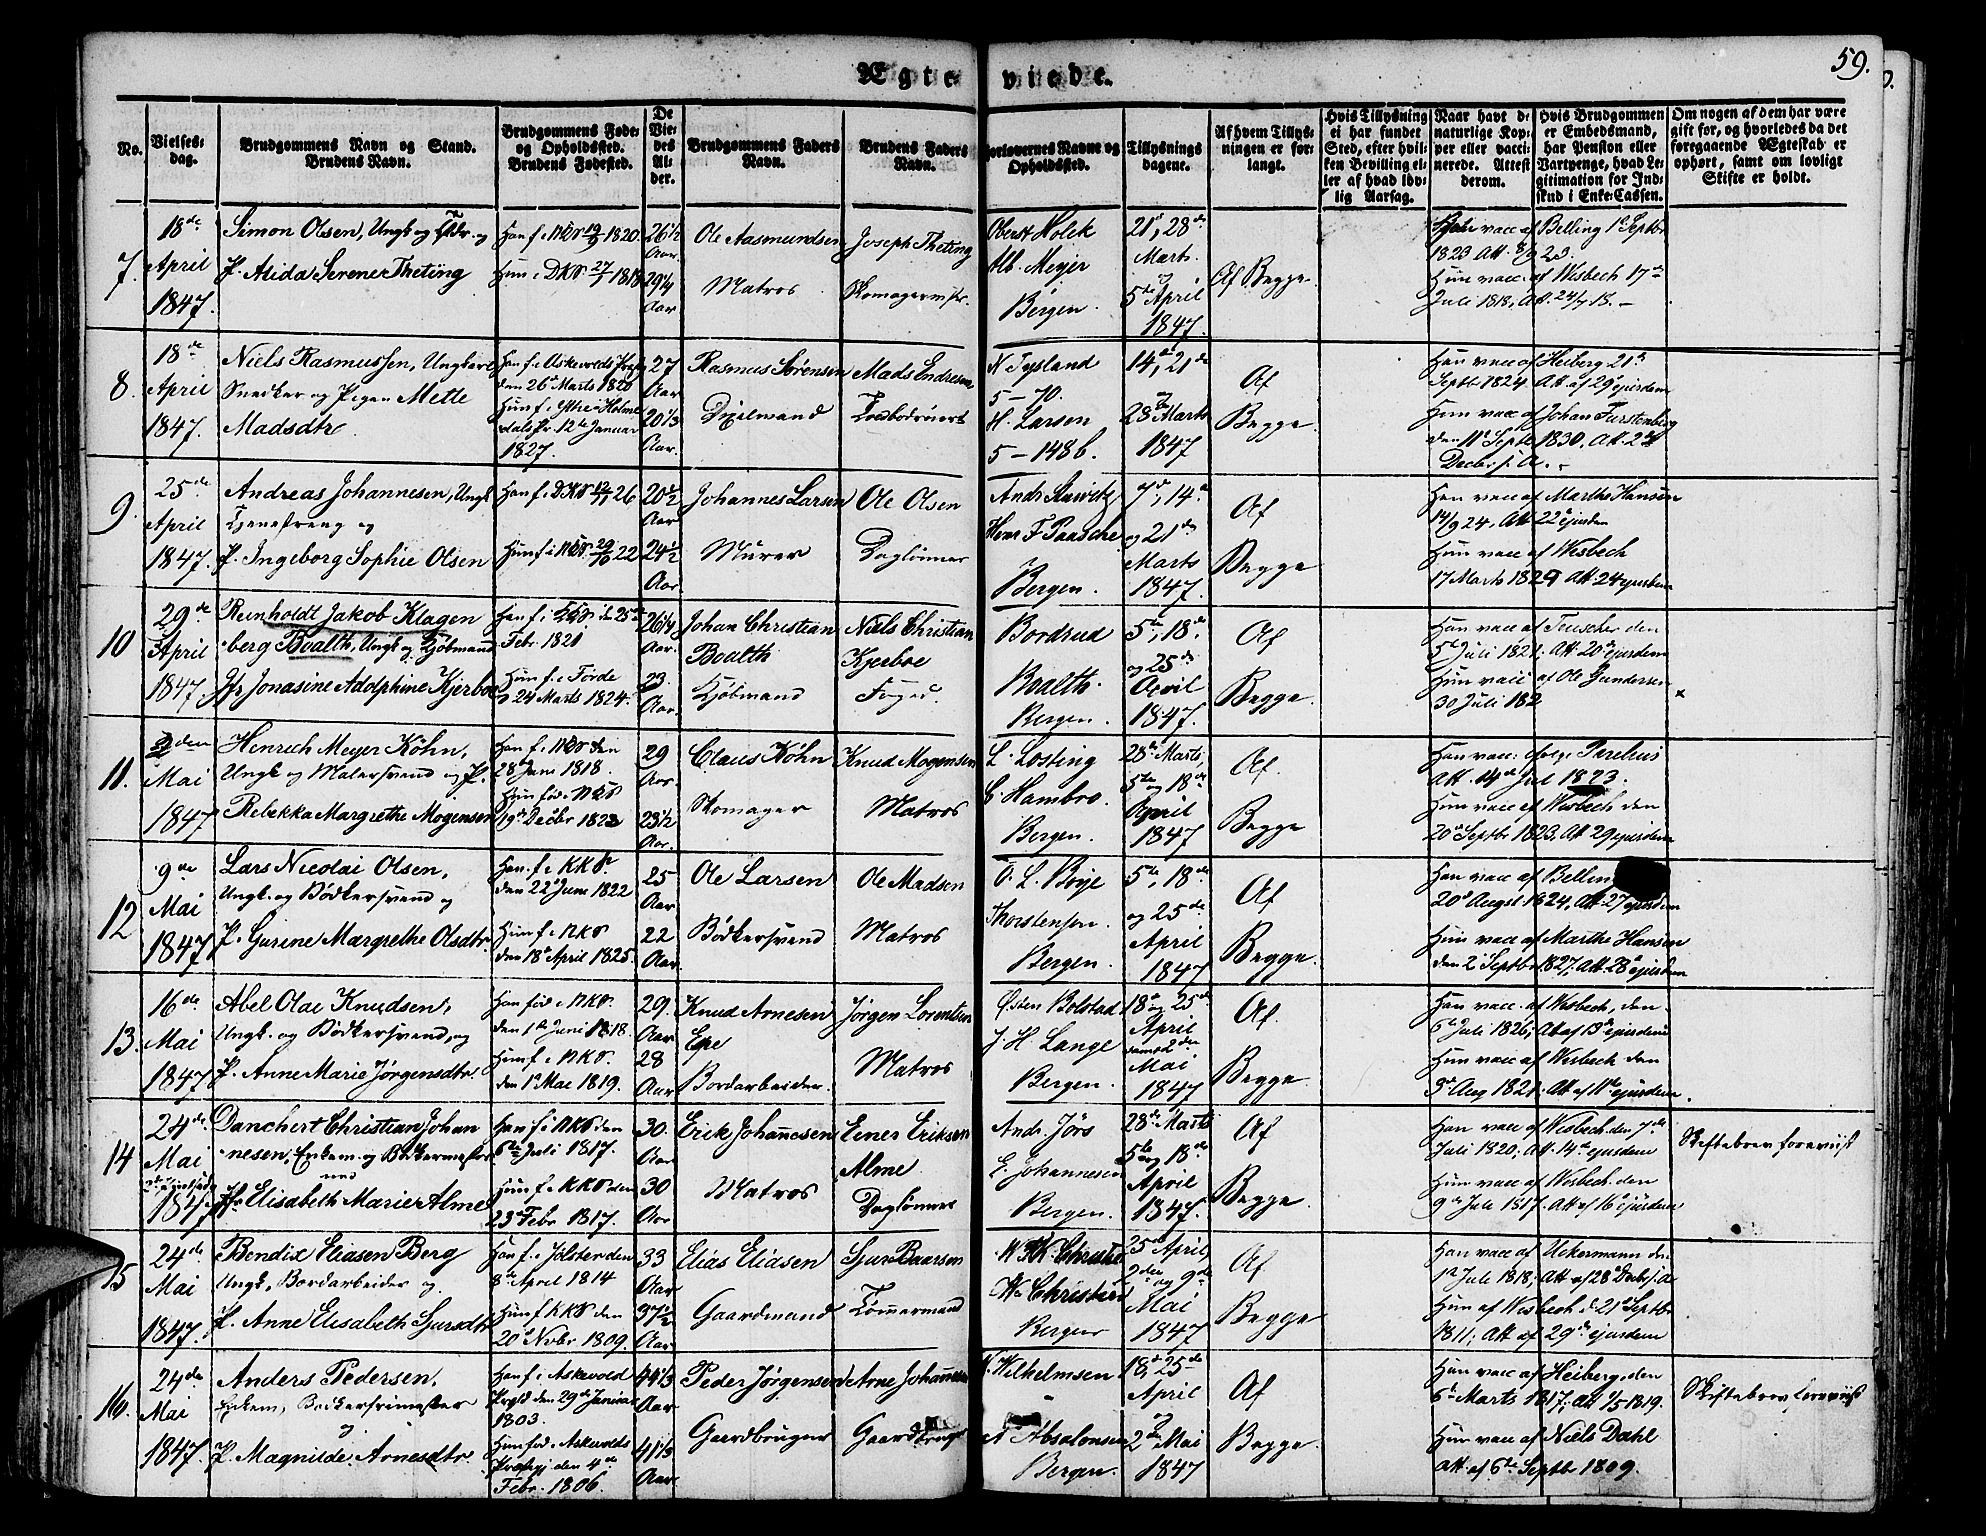 59.
Ægteviede.
No.
Vielses-
dag.
Brudgommens Navn og Stand.
Brudens Navn.
Brudgommens Føde-
og Opholdssted.
Brudens Fødested.
De
Vie-
des
Al-
der.
Brudgommens Faders
Navn.
Brudens Faders
Navn.
Forlovernes Navne og
Opholdssted.
Tillysnings
dagene.
Af hvem Tillys-
ningen er for-
langt.
Hvis Tillysning
ei har fundet
Sted, efter hvil-
ken Bevilling el-
ler af hvad lov-
lig Aarsag.
Naar havt de
naturlige Kop-
per eller vacci-
nerede. Attest
derom.
Hvis Brudgommen
er Embedsmand,
har Pension eller
Vartpenge, hvad Le-
gitimation for Ind-
skud i Enke-Cassen.
Om nogen af dem har være
gift før, og hvorledes da det
foregaaende Ægteskab er
ophørt, samt om lovligt
Skifte er holdt.
7.
18de
April
1847.
Simon Olsen, Ungk og
P. Alida Serene Theting
Han f. i NKS 19/9 1820.
Hun i DKS 27/ 1818
26 1/2
Aar
29 1/4
Aar
Ole Aasmundsen
Matros
Joseph Theting
Skomagermstr.
Oberst Holck
Alb. Meyer
Bergen.
21d, 28de
Marts
og
5te April
1847.
Af Begge.
Han vacc af Belling 1d Septbr
1823 Att. 8/9 23.
Hun vacc. af Wesbech 17de
Juli 1818, Att. 24/7 18. -
8.
18de
April
1847.
Niels Rasmussen, Ungkarl
Snedker og Pigen Mette
Madsdtr
Han f. i Askevolds Prgj
den 26d Marts 1820
Hun f. i Ytre Holme
dals Pr. 12te Januar
1827.
27
Aar
20 1/3
Aar.
Rasmus Sørensen
Mads Endresen
N Tysland
5 - 70.
H. Larsen
5 - 148b.
14d, 21de
og
28de Marts
1847
Af
Begge.
Han vacc af Heiberg 21de
Septb 1824 Att. af 29d ejusdem
Hun vacc af Johan Furstenberg
den 11d Septb 1830, Att. 2d
Decbr s. A. -
9
25de
April
1847.
Andreas Johannesen, Ungk
Tjenestedreng og
P. Ingeborg Sophie Olsen
Han f. i DKS 12/11 26
Hun f. i NKS 29/10 22
20 1/2
Aar
24 1/2
Aar.
Johannes Larsen
Murer
Ole Olsen
Daglønner
Hans F Paasche
Bergen.
7de, 14d
og 21de
Marts
1847.
Af
Begge
Han vacc af Marthe Hansen
14/9 24, Att. 22d ejusdem
Hun vacc af Wesbech
17 Marts 1829 Att. 24 ejusdem
10
29de
April
1847.
Reinholdt Jakob Klagen
berg Boalth, Ungk og Kjøbmand
Jfr Jonasine Adolphine Kjerboe
Han f. i KKS. den 25de
Febr. 1821
Hun f. i Førde
24 Marts 1824.
26 1/4
Aar.
23.
Aar.
Johan Christian
Boalth
Kjøbmand
Niels Christian
Kjerboe
Foged.
Bordrud
Boalth.
Bergen.
5te, 18de
og 25de
April
1847.
Af
Begge.
Han vacc af Teuscher den
5d Juli 1821; Att. 20d ejusdem
Hun vacc af Ole Gundersen
30 Juli 182
11.
2den
Mai
1847
Henrich Meyer Köhn,
Ungk og Malersvend og P.
Rebekka Margrethe Mogensen
Han f. i NKS den
28d Juni 1818.
Hun fød i NKS
19de Decbr 1823
29
Aar.
23 1/2
Aar.
Claus Köhn
Skomager
Knud Mogensen
Matros
L. Losting
C. Hambro.
Bergen.
28de Marts,
5te og 18de
April
1847
Af.
Begge
Han vacc: ifølge Parelius
Att. 14de Jul 1823.
Hun vacc af Wesbech den
20d Septbr 1823. Att. 29 ejusdem
12
9de
Mai
1847
Lars Nicolai Olsen,
Ungk og Bødkersvend og
P. Gurine Margrethe Olsdtr.
Han f. i KKS
den 22d Juni 1822
Hun f. i NKS
den 18d April 1825.
25
Aar
22
Aar.
Ole Larsen
Bødkersvend
Ole Madsen
Matros
O. L. Boye
Thorstensen.
Bergen.
5te, 18de
og 25de
April
1847
Af
Begge.
Han vacc af Bellin
20d Augst 1824, Att. 27 ejusdem
Hun vacc af Marthe Hansen
den 2 Septbr 1827, Att. 28d ejusdem
13.
16de
Mai
1847
Abel Olai Knudsen,
Ungk. og Bødkersvend, og
P. Anne Marie Jørgensdtr.
Han fød i NKS.
den 1ste Juni 1818.
Hun f. i NKS.
den 1d Mai 1819.
29.
Aar
28
Aar
Knud Arnesen
Epe
Bordarbeider.
Jørgen Lorentsen
Matros
Østen Bolstad
J. H. Lange
Bergen.
18d og 25de
April
samt 2den
Mai
1847
Af.
Begge.
Han vacc. af Wesbech, den
6te Juli 1826, Att af 13d ejusdem
Hun vacc af Wesbech den
3d Aug 1821. Att af 11te ejusdem.
14
24de
Mai
1847
Danchert Christian Johan
nesen, Enkem. og Bødkermester
med
Elisabeth Marie Alme
Han f. i NKS den
6te Juli 1817.
Hun f. i KKS den
23d Febr 1817.
30.
Aar
30
Aar
Erik Johannesen
Matros
Einer Eriksen
Alme.
Daglønner
Andr. Jörs
E. Johannesen
Bergen.
28de Marts
5te og 18de
April
1847.
Af
Begge.
Han vacc af Wesbech den 7de
Juli 1820; Att. 14de ejusdem
Hun vacc af Wesbech den
9de Juli 1817. Att af 16d ejusdem
Skiftebrev foreviist
15
24de
Mai
1847.
Bendix Eliasen Berg
Ungk., Bordarbeider og
P. Anne Elisabeth Sjursdtr
Han f. i Jølster den
8de April 1814
Hun f. KKS den
20d Novbr 1809.
33
Aar
37 1/2
Aar
Elias Eliasen
Gaardmand
Sjur Baarsen
Tømmermand
Bergen
25d April
2den og 9de
Mai
1847
Af
Begge.
Han vacc af Uckermann den
1d Juli 1818; Att af 28d Decbr s. A.
Hun af Wesbech d. 21d Septbr
1811; Att af 29de ejusdem
16.
24de
Mai
1847.
Anders Pedersen,
Enkem, Bødkersvimester
og
P. Magnilde Arnesdtr.
Han f. i Askevold
Prgjld den 29de Januar
1803.
Hun fød i Askevolds
Prgj den 4de
Febr. 1806.
44 1/3
Aar
41 1/3
Aar.
Peder Jørgensen
Gaardbruger
Arne Johannesen
Gaardbruger
N. Wilhelmsen
Absalonsen
Bergen.
18d, 25de
April
og
2den Mai
1847
Af
Begge.
Han vacc af Heiberg, den
6d Marts 1817, Att 1/5 1819.
Hun vacc af Niels Dahl
Att. af 6te Septbr 1809.
Skiftebrev foreviist